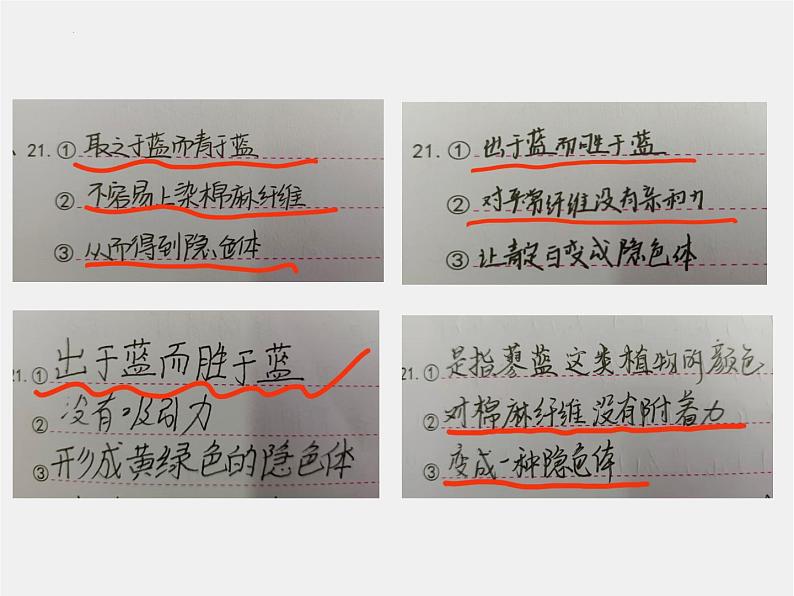 21. ① 取之于蓝而青于蓝
② 不容易上染棉麻纤维
③ 从而得到隐色体
21. ① 出于蓝而胜于蓝
② 对平常纤维没有亲和力
③ 让靛白变成隐色体
21. ① 出于蓝而胜于蓝
② 没有吸引力
③ 形成黄绿色的隐色体
21. ① 是指蓼蓝这类植物的颜色
② 对棉麻纤维没有附着力
③ 变成一种隐色体